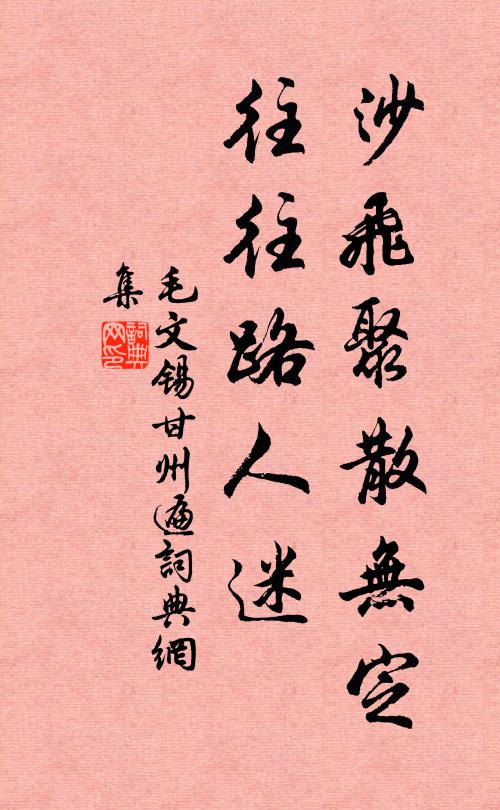 沙飛聚散無定
往往路人迷
毛文錫甘州遍詞典網
集
詞典
网印